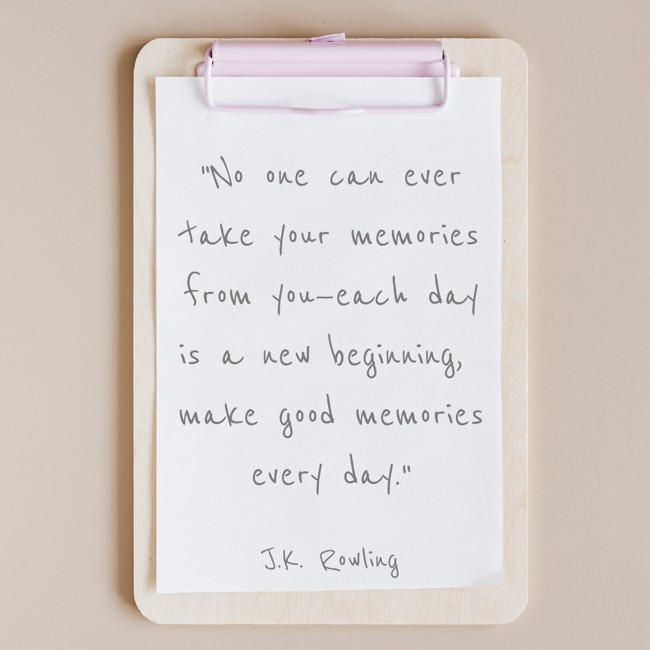 "No one can ever
take your memories
from you—each day
is a new beginning,
make good memories
every day."
J.K. Rowling